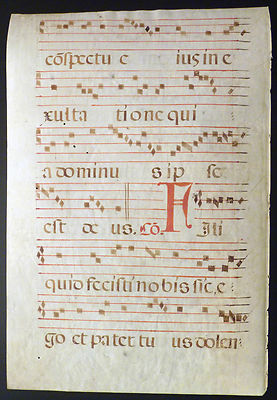 cōspectu e ius in e
xulta tione qui
a dominu s ip se
est de us. Cō. Fili
quid fecisti nobis sic, e
go et pater tu us dolen